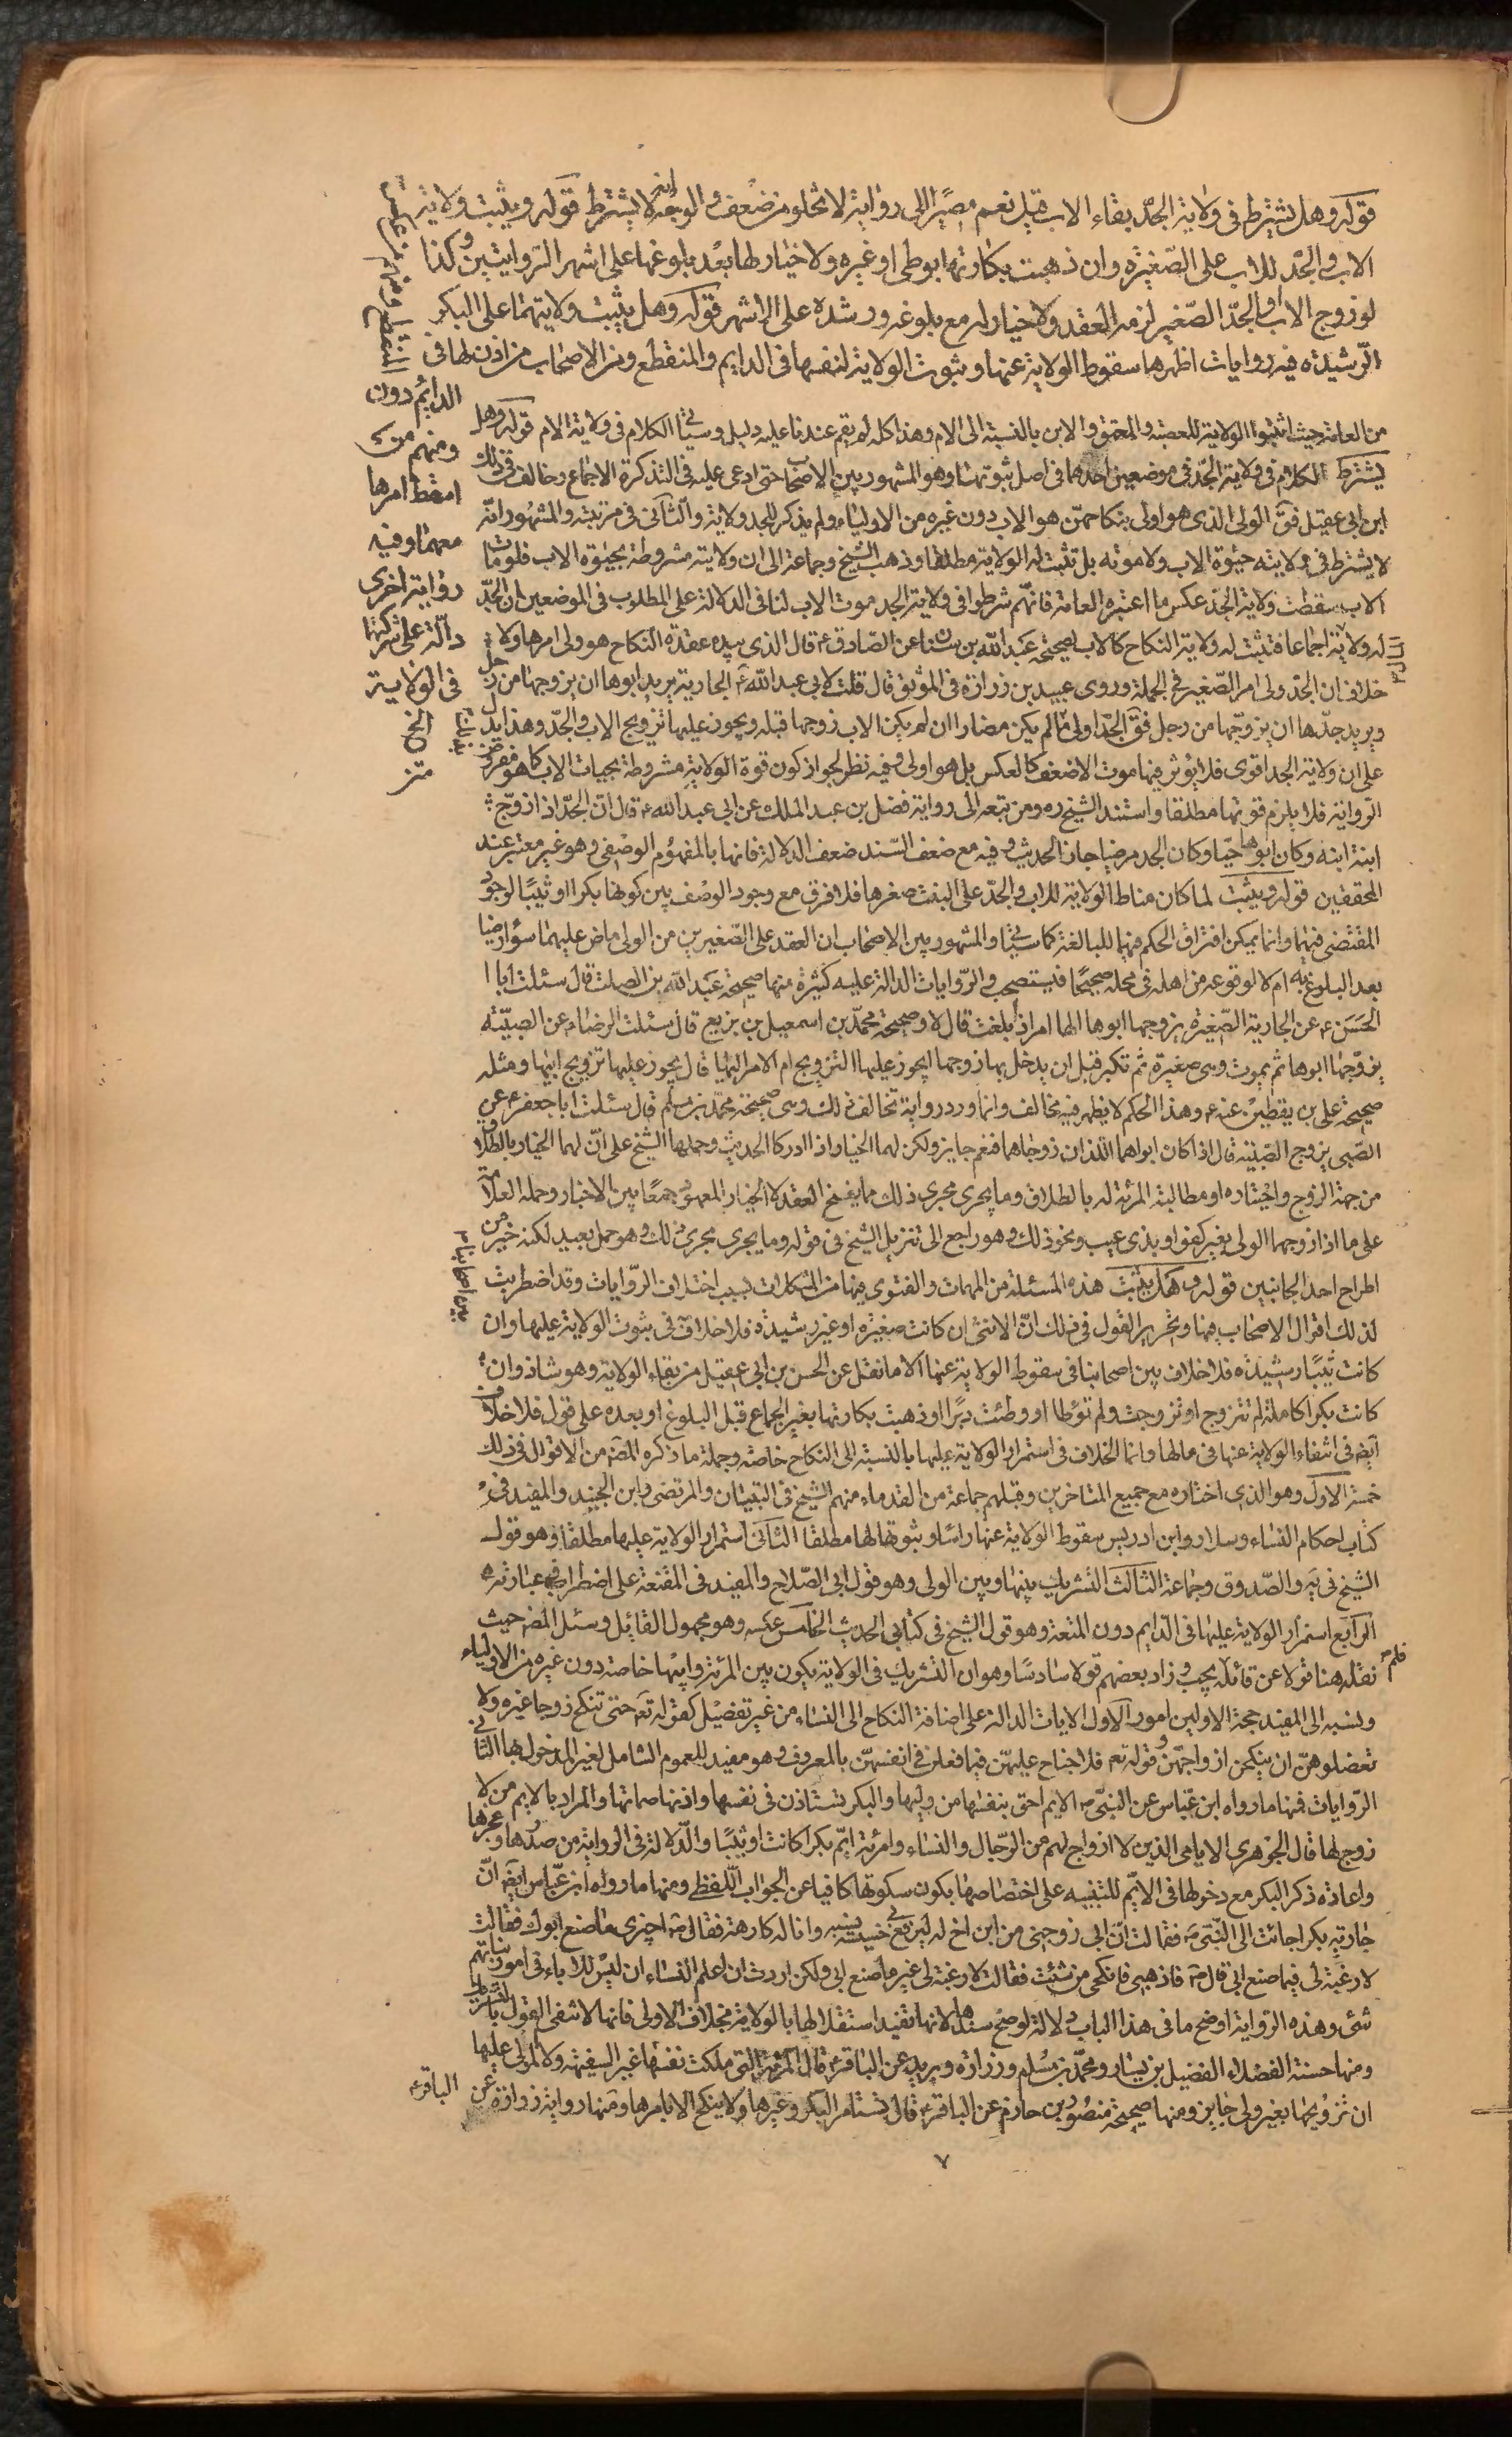 قوله وهل يشترط فى ولاية الجدّ بقاء الاب قيل نعم مصيرا الى رواية لا تخلو من ضعف و الوجه انه لا يشترط قوله ويثبت ولاية
الاب والجدّ للاب على الصّغيرة وان ذهبت بكارتها بوطى او غيره ولا خيار لها بعد بلوغها على اشهر الروايتين وكذا
لو زوج الاب والجدّ الصّغير لزمه العقد ولا خيار له مع بلوغه ورشده على الاشهر قوله وهل يثبت ولايتهما على البكر
الرّشيدة فيه روايات اظهرها سقوط الولاية عنها وثبوت الولاية لنفسها فى الدايم والمنقطع ومن الاصحاب من اذن لها فى
الدائم دون
ومنهم من
اسقط امرها
معهما وفيه
رواية اخرى
دالّة على شركتها
فى الولاية
الخ
من العامة حيث اثبتوا الولاية للعصبة والمعتق والابن بالنسبة الى الام وهذا كله لم يقم عندنا عليه دليل وسياتى الكلام فى ولاية الام قوله وهل
يشترط الكلام فى ولاية الجدّ فى موضعين احدهما فى اصل ثبوتها وهو المشهور بين الاصحاب حتى ادعى عليه فى التذكرة الاجماع وخالف فى ذلك
ابن ابى عقيل فقال الولى الذى هو اولى بنكاحهنّ هو الاب دون غيره من الاولياء ولم يذكر للجد ولاية والثانى فى مرتبته والمشهور انّه
لا يشترط فى ولايته حيوة الاب ولا موته بل تثبت له الولاية مطلقا وذهب الشيخ وجماعة الى ان ولايته مشروطة بحيوة الاب فلو مات
الاب سقطت ولاية الجدّ عكس ما اعتبره العامة فانّهم شرطوا فى ولاية الجد موت الاب لنا فى الدلالة على المطلوب فى الموضعين ان الجدّ
له ولاية اجماعا فتثبت له ولاية النكاح كالاب لصحيحة عبد الله بن سنان عن الصّادق ع قال الذى بيده عقدة النكاح هو ولى امرها ولا
خلاف ان الجدّ ولى امر الصّغير فى الجملة وروى عبيد بن زرارة فى الموثق قال قلت لابى عبد الله ع الجارية يريد ابوها ان يزوجها من رجل
ويريد جدّها ان يزوّجها من رجل فقال الجدّ اولى ما لم يكن مضارا ان لم يكن الاب زوجها قبله ويجوز عليها تزويج الاب والجدّ وهذا يدل
على ان ولاية الجد اقوى فلا يؤثر فيها موت الاضعف كالعكس بل هو اولى وفيه نظر لجواز كون قوة الولاية مشروطة بحيات الاب كما هو مفروض
الرّواية فلا يلزم قوتها مطلقا واستند الشيخ ره ومن تبعه الى رواية فضل بن عبد الملك عن ابى عبد الله ع قال انّ الجدّ اذا زوّج
ابنة ابنه وكان ابوها حيّا وكان الجد مرضيا جاز الحديث وفيه مع ضعف السّند ضعف الدلالة فانها بالمفهوم الوصفى وهو غير معتبر عند
المحققين قوله ويثبت لما كان مناط الولاية للاب والجدّ على البنت صغرها فلا فرق مع وجود الوصف بين كونها بكرا او ثيّبا لوجود
المقتضى فيهما وانما يمكن افتراق الحكم فيهما للبالغة كما سياتى والمشهور بين الاصحاب ان العقد على الصّغيرين من الولى ماض عليهما سواء رضيا
بعد البلوغ به ام لا لوقوعه من اهله فى محله صحيحًا فيستصحب والرّوايات الدالة عليه كثيرة منها صحيحة عبد الله بن الصلت قال سئلت ابا
الحسن ع عن الجارية الصّغيرة يزوجها ابوها الها امر اذا بلغت قال لا وصحيحة محمّد بن اسمعيل بن بزيع قال سئلت الرضا ع عن الصبيّة
يزوّجها ابوها ثم يموت وهى صغيرة ثم تكبر قبل ان يدخل بها زوجها ايجوز عليها التزويج ام الامر اليها قال يجوز عليها تزويج ابيها ومثله
صحيحة على بن يقطين عنه ع وهذا الحكم لا يظهر فيه مخالف وانما ورد رواية تخالف ذلك وهى صحيحة محمّد بن مسلم قال سئلت ابا جعفر ع عن
الصّبى يزوج الصّبيّة قال اذا كان ابواهما اللّذان زوجاهما فنعم جايز ولكن لهما الخيار اذا ادركا الحديث وحملها الشيخ على انّ لهما الخيار بالطلاق
من جهة الزوج واختياره او مطالبة المرئة له بالطلاق وما يجرى مجرى ذلك مما يفسخ العقد لا الخيار المعهود جمعًا بين الاخبار وحمله العلامة
على ما اذا زوجهما الولى بغير كفو او بذى عيب ونحو ذلك وهو راجع الى تنزيل الشيخ فى قوله وما يجرى مجرى ذلك وهو حمل بعيد لكنه خير من
اطراح احد الجانبين قوله وهل يثبت هذه المسئلة من المهمات والفتوى فيها من المشكلات بسبب اختلاف الرّوايات وقد اضطربت
لذلك اقوال الاصحاب فيها وتحرير القول فى ذلك انّ الانثى ان كانت صغيرة او غير رشيدة فلا خلاف فى ثبوت الولاية عليها وان
كانت ثيّبًا رشيدة فلا خلاف بين اصحابنا فى سقوط الولاية عنها الا ما نقل عن الحسن بن ابى عقيل من بقاء الولاية وهو شاذ وان
كانت بكرا كاملة لم تتزوج او تزوجت ولم توطا او وطئت دبرًا او ذهبت بكارتها بغير الجماع قبل البلوغ او بعده على قول فلا خلاف
ايضا فى انتفاء الولاية عنها فى مالها وانما الخلاف فى استمرار الولاية عليها بالنسبة الى النكاح خاصّة وجملة ما ذكره المصنّف من الاقوال فى ذلك
خمسة الاول وهو الذى اختاره مع جميع المتاخرين وقبلهم جماعة من القدماء منهم الشيخ فى التبيان والمرتضى وابن الجنيد والمفيد فى
كتاب احكام النساء وسلار وابن ادريس سقوط الولاية عنها راسًا وثبوتها لها مطلقا الثانى استمرار الولاية عليها مطلقا وهو قول
الشيخ فى يه والصّدوق وجماعة الثالث التشريك بينها وبين الولى وهو قول ابى الصّلاح والمفيد فى المقنعة على اضطراب فى عبارته
الرّابع استمرار الولاية عليها فى الدّايم دون المتعة وهو قول الشيخ فى كتابى الحديث الخامس عكسه وهو مجهول القائل وسئل المص حيث
نقله هنا قولا عن قائله فلم يجب وزاد بعضهم قولا سادسًا وهو ان التشريك فى الولاية يكون بين المرئة وابيها خاصة دون غيره من الاولياء
ونسبه الى المفيد حجة الاولين امور الاول الايات الدالة على اضافة النكاح الى النساء من غير تفصيل كقوله تع حتى تنكح زوجا غيره ولا
تعضلوهنّ ان ينكحن ازواجهنّ وقوله تع فلا جناح عليهنّ فيما فعلن فى انفسهنّ بالمعروف وهو مفيد للعموم الشامل لغير المدخول بها الثانى
الرّوايات فمنها ما رواه ابن عبّاس عن النبى ص الايم احق بنفسها من وليها والبكر تستاذن فى نفسها واذنها صماتها والمراد بالايم من لا
زوج لها قال الجوهرى الايامى الذين لا ازواج لهم من الرّجال والنساء وامرئة ايّم بكرا كانت او ثيّبًا والدّلالة فى الرواية من صدرها وعجزها
واعادة ذكر البكر مع دخولها فى الايّم للتنبيه على اختصاصها بكون سكوتها كافيا عن الجواب اللّفظى ومنها ما رواه ابن عبّاس ايضا انّ
جارية بكرا جائت الى النّبى ص فقالت انّ ابى زوجنى من ابن اخ له ليرفع خسيسته وانا له كارهة فقال ص اجيزى ما صنع ابوك فقالت
لا رغبة لى فيما صنع ابى قال ص فاذهبى فانكحى من شئت فقالت لا رغبة لى غير ما صنع ابى ولكن اردت ان اعلم النساء ان ليس للاباء فى امور بناتهم
شئ وهذه الرّواية اوضح ما فى هذا الباب دلالة لو صح سندها لانها تفيد استقلالها بالولاية بخلاف الاولى فانها لا تنفى القول بالتشريك
ومنها حسنة الفضلاء الفضيل بن يسار ومحمّد بن مسلم وزرارة وبريد عن الباقر ع قال المرئة التى ملكت نفسها غير السفيهة ولا المولى عليها
ان تزويجها بغير ولى جايز ومنها صحيحة منصور بن حازم عن الباقر ع قال تستامر البكر وغيرها ولا ينكح الا بامرها ومنها رواية زرارة عن
الباقر ع
٧